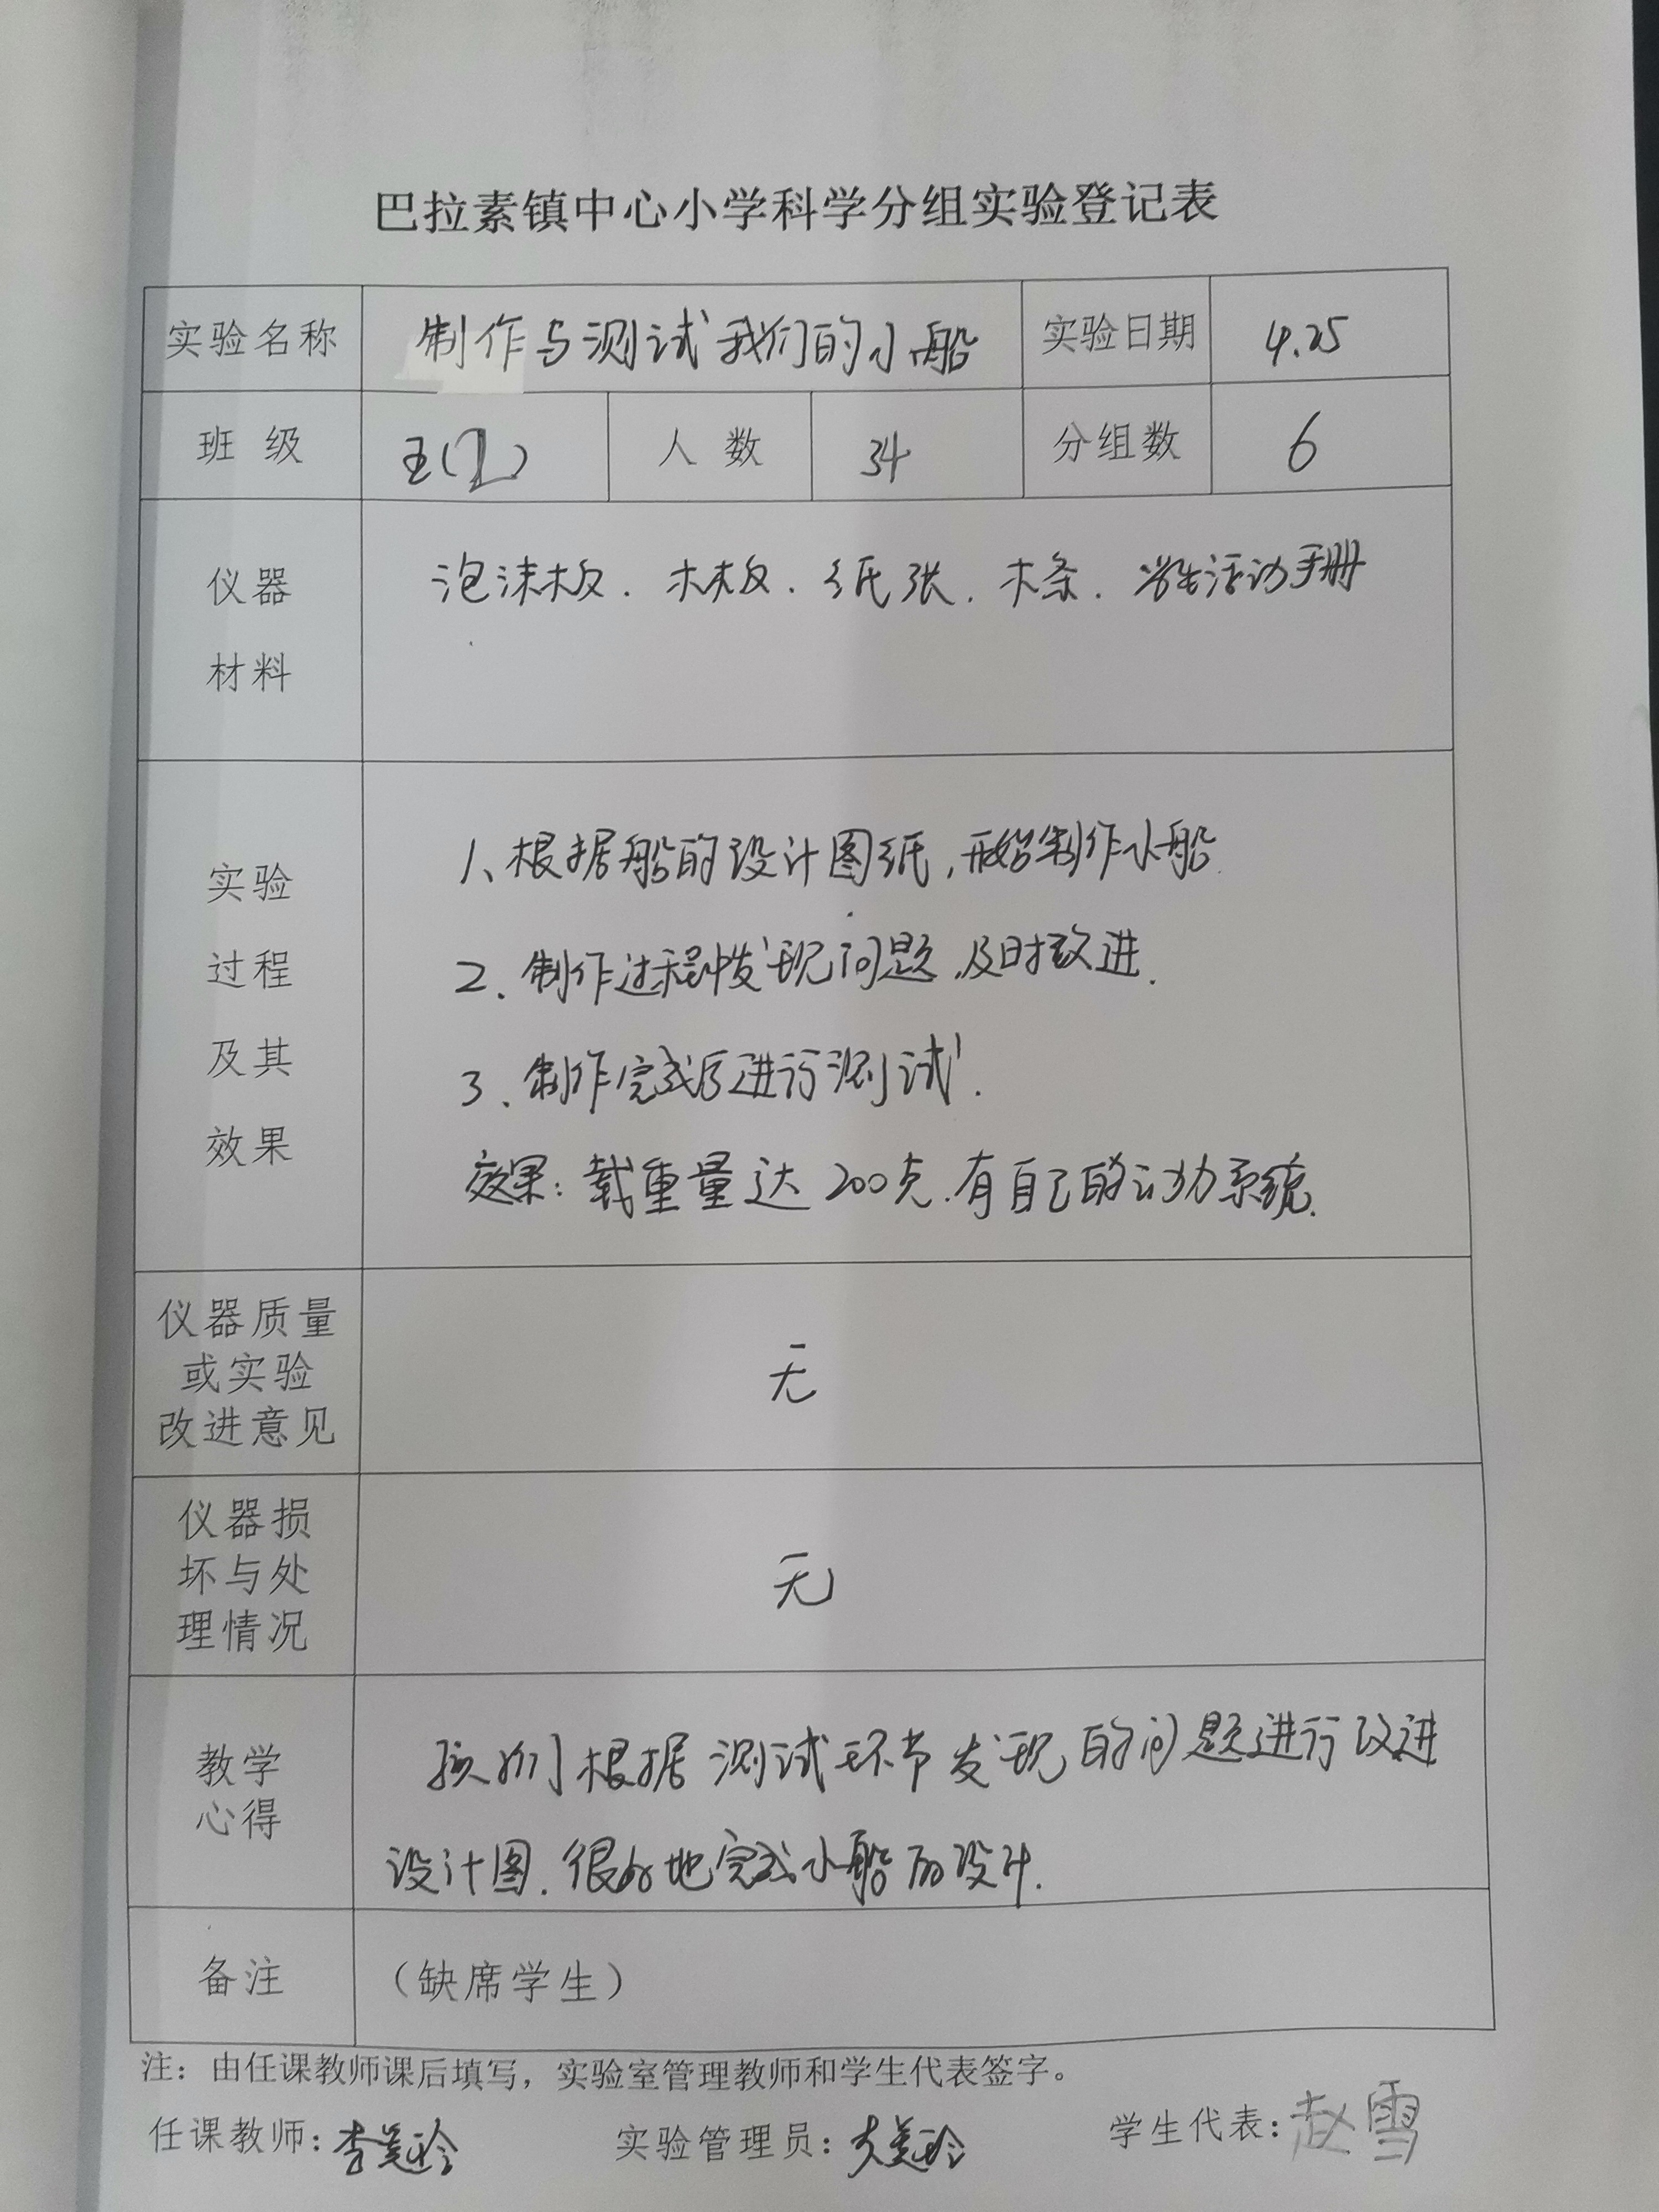 巴拉素镇中心小学科学分组实验登记表
实验名称 制作与测试我们的小船 实验日期 4.25
班 级 五(2) 人 数 34 分组数 6
仪器
材料
泡沫板. 木板. 纸张. 木条. 学生活动手册
实验
过程
及其
效果
1、根据船的设计图纸,开始制作小船.
2、制作过程中发现问题,及时改进.
3、制作完成后进行测试.
效果:载重量达200克.有自己的动力系统.
仪器质量
或实验
改进意见
无
仪器损
坏与处
理情况
无
教学
心得
孩子们根据测试环节发现的问题进行改进
设计图.很好地完成小船的设计.
备注 (缺席学生)
注:由任课教师课后填写,实验室管理教师和学生代表签字。
任课教师: 实验管理员: 学生代表:赵雪